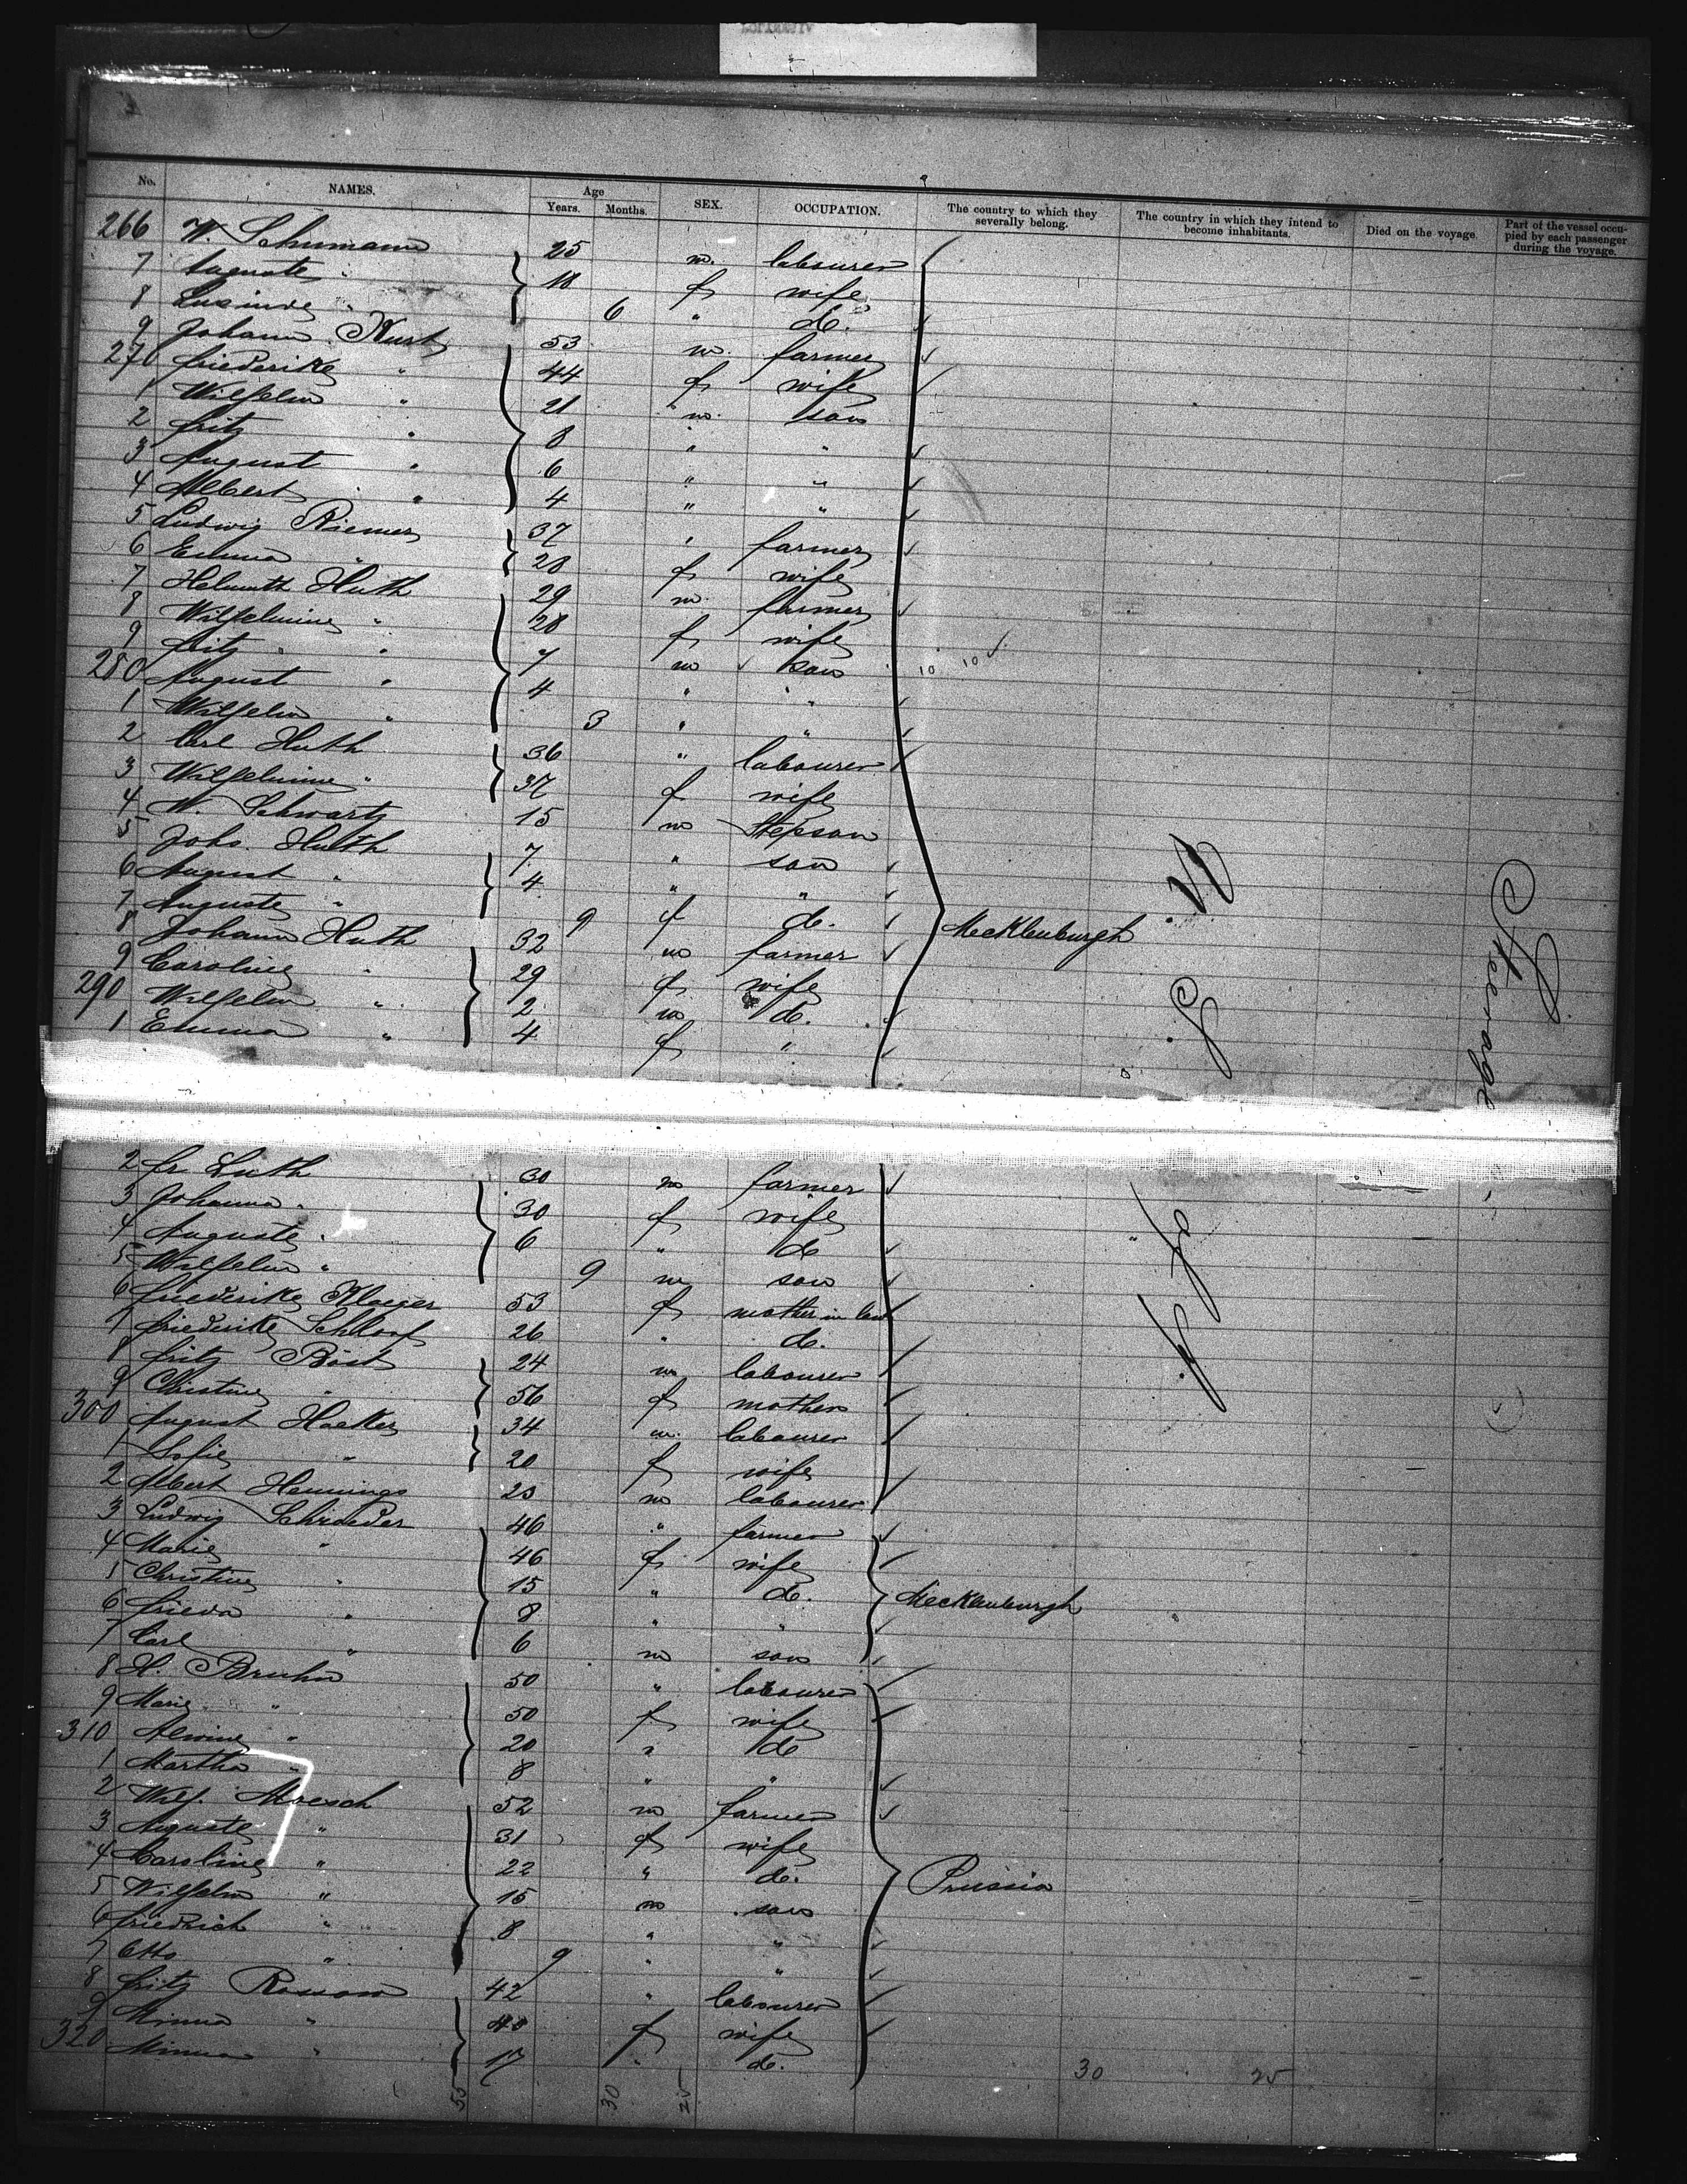 No. NAMES. Age Years. Months. SEX. OCCUPATION. The country to which they severally belong. The country in which they intend to become inhabitants. Died on the voyage. Part of the vessel occupied by each passenger during the voyage.
266 W. Schumann 25 m. labourer
7 Auguste " 18 f wife
8 " 6 " do.
9 Johann Wust 53 m. farmer
270 Friederike " 44 f wife
1 Wilhelm " 21 m. son
2 Fritz " 8 " "
3 August " 6 " "
4 Albert " 4 " "
5 Ludwig Riemer 37 " farmer
6 Emma " 28 f wife
7 Helmuth Huth 29 m. farmer
8 Wilhelmine " 28 f wife
9 Fritz " 7 m son 10 10
280 August " 4 " "
1 Wilhelm " 3 " "
2 Carl Huth 36 " labourer
3 Wilhelmine " 37 f wife
4 W. Schwartz 15 m Stepson
5 Johs. Huth 7 " son
6 August " 4 " "
7 Auguste " 9 f do. Mecklenburgh
8 Johann Huth 32 m farmer
9 Caroline " 29 f wife
290 Wilhelm " 2 m do.
1 Emma " 4 f "
U. S. of A.
Steerage
2 Fr. Luth 30 m farmer
3 Johanna " 30 f wife
4 Auguste " 6 " do
5 Wilhelm " 9 m son
6 Friederike Klaeger 53 f mother in law
7 Friederike Schloof 26 " do.
8 Fritz Bast 24 m labourer
9 Christine " 56 f mother
300 August Hacker 34 m. labourer
1 Sofie " 20 f wife
2 Albert Hennings 23 m labourer
3 Ludwig Schroeder 46 " farmer
4 Marie " 46 f wife
5 Christine " 15 " do. Mecklenburgh
6 Frieda " 8 " "
7 Carl " 6 m son
8 H. Bruhn 50 " labourer
9 Marie " 50 f wife
310 Alwine " 20 " do
1 Martha " 8 " "
2 Wilh. Moesch 52 m farmer
3 Auguste " 31 f wife
4 Caroline " 22 " do. Prussia
5 Wilhelm " 15 m son
6 Friedrich " 8 " "
7 Otto " 9 " "
8 Fritz Rossow 42 " labourer
9 Minna " 40 f wife
320 Minna " 17 " do.
55 30 25 30 25